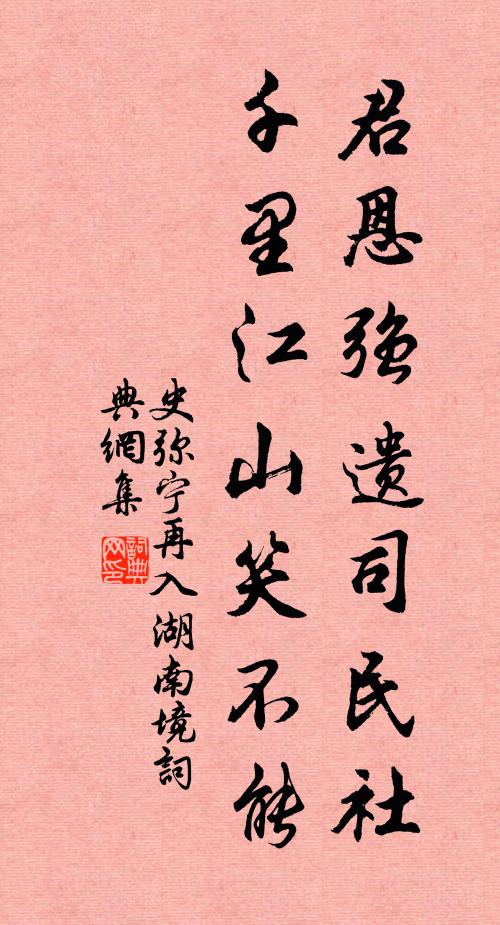 君恩強遺司民社
千里江山笑不能
史弥宁再入湖南境詞
典網集
詞典
网印